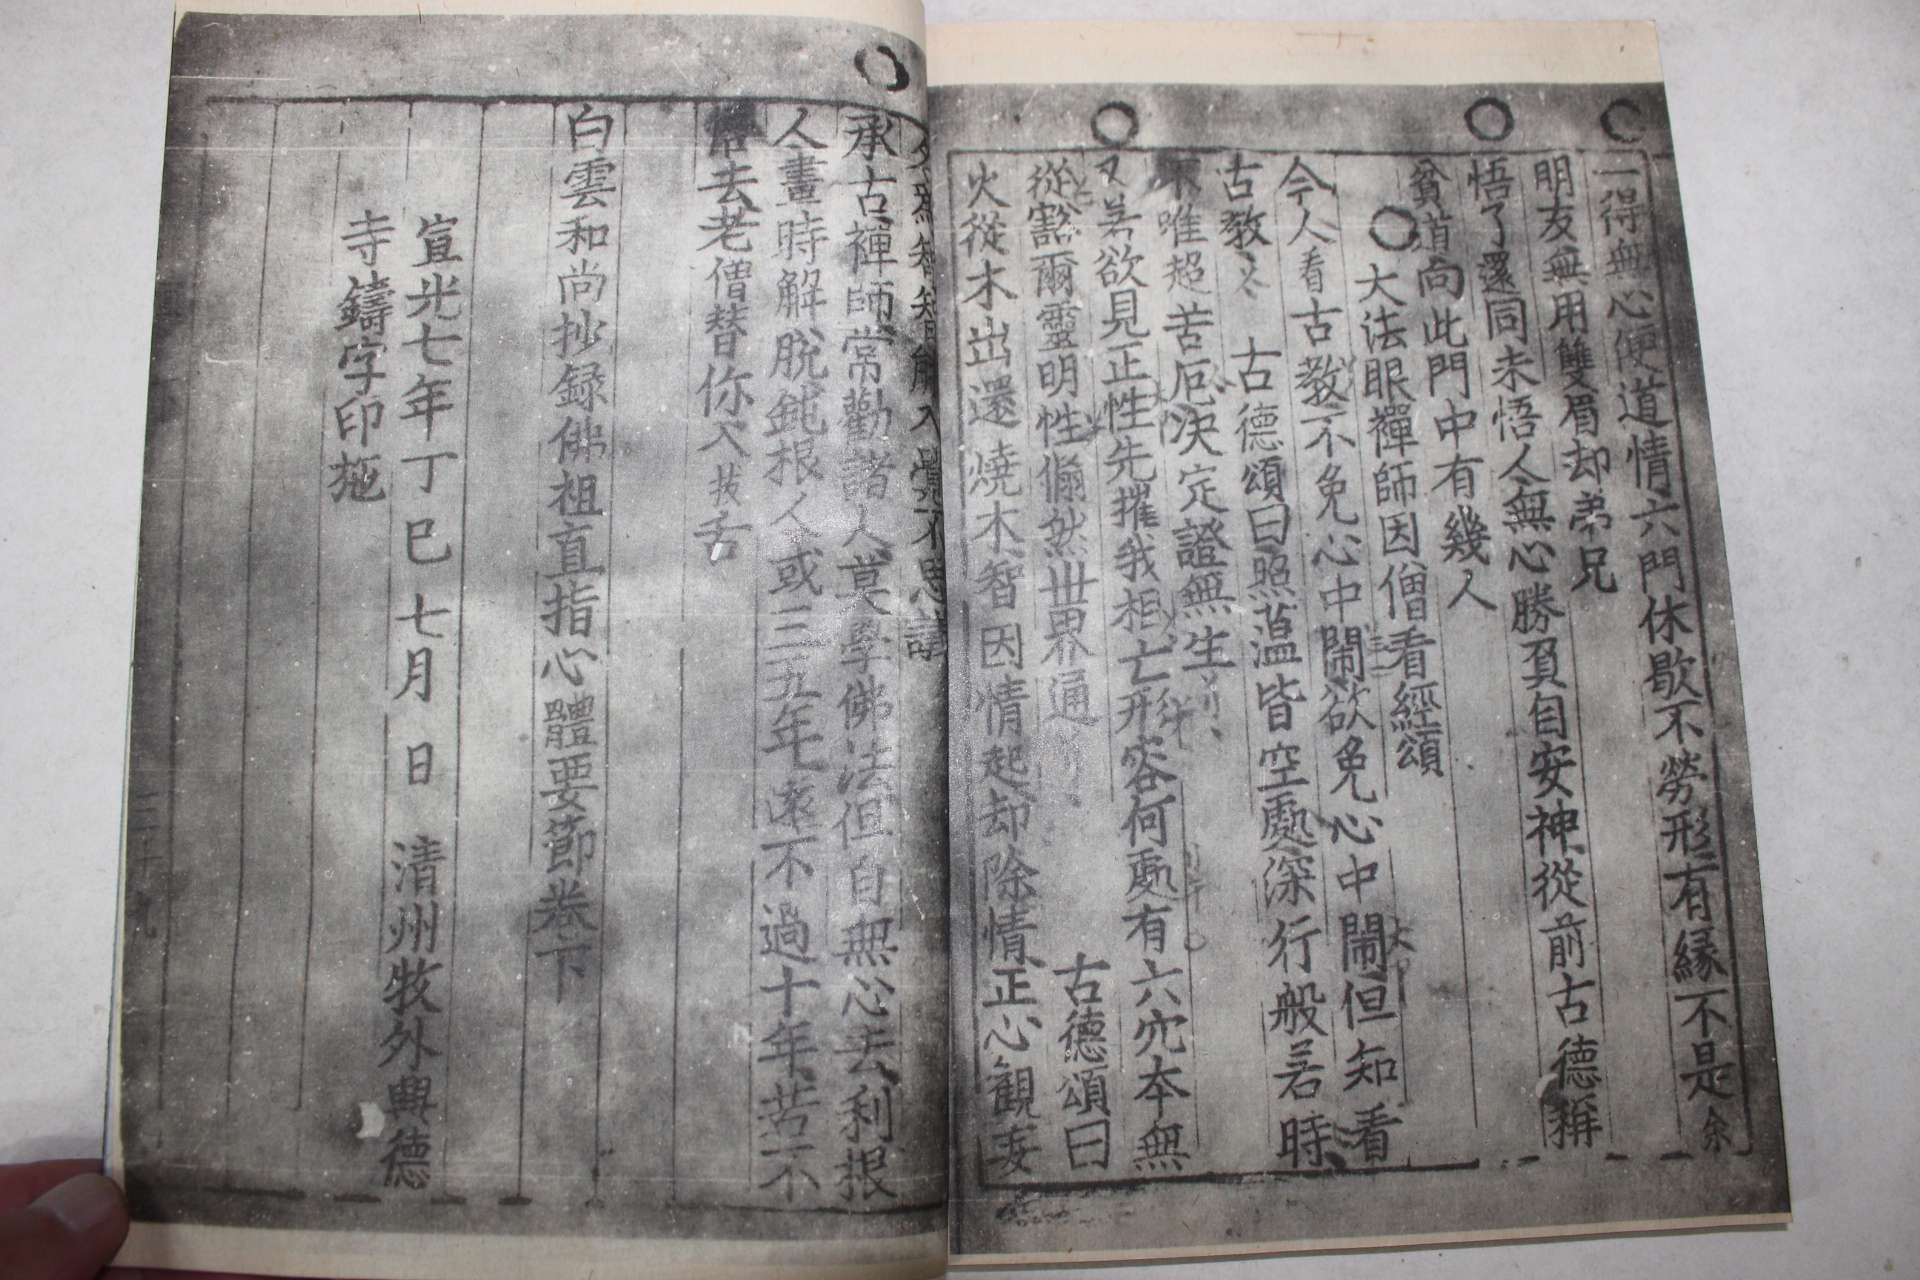 一得無心便道情六門休歇不勞形有緣不是余
明友無用雙眉却弟兄
悟了還同未悟人無心勝負自安神從前古德稱
貧道向此門中有幾人
大法眼禪師因僧看經頌
今人看古教不免心中鬧欲免心中鬧但知看
古教 古德頌曰照蘊皆空處深行般若時
不唯超苦厄決定證無生
又若欲見正性先摧我相亡形容何處有六穴本無
從豁爾靈明性翛然世界通 古德頌曰
火從木出還燒木智因情起却除情正心觀妄
入覺不思議
承古禪師常勸諸人莫學佛法但自無心去利根
人晝時解脫鈍根人或三五年遠不過十年若不
去老僧替你入拔舌
白雲和尚抄録佛祖直指心體要節卷下
宣光七年丁巳七月 日 清州牧外興德
寺鑄字印施
三十九